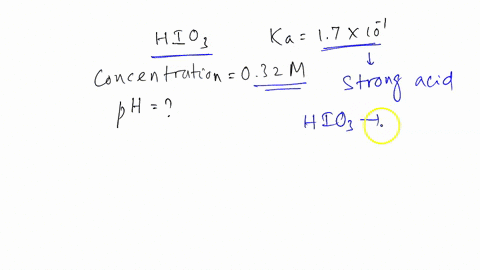 HIO₃ Ka = 1.7 × 10⁻¹
Concentration = 0.32 M
↓
Strong acid
pH = ?
HIO₃ →